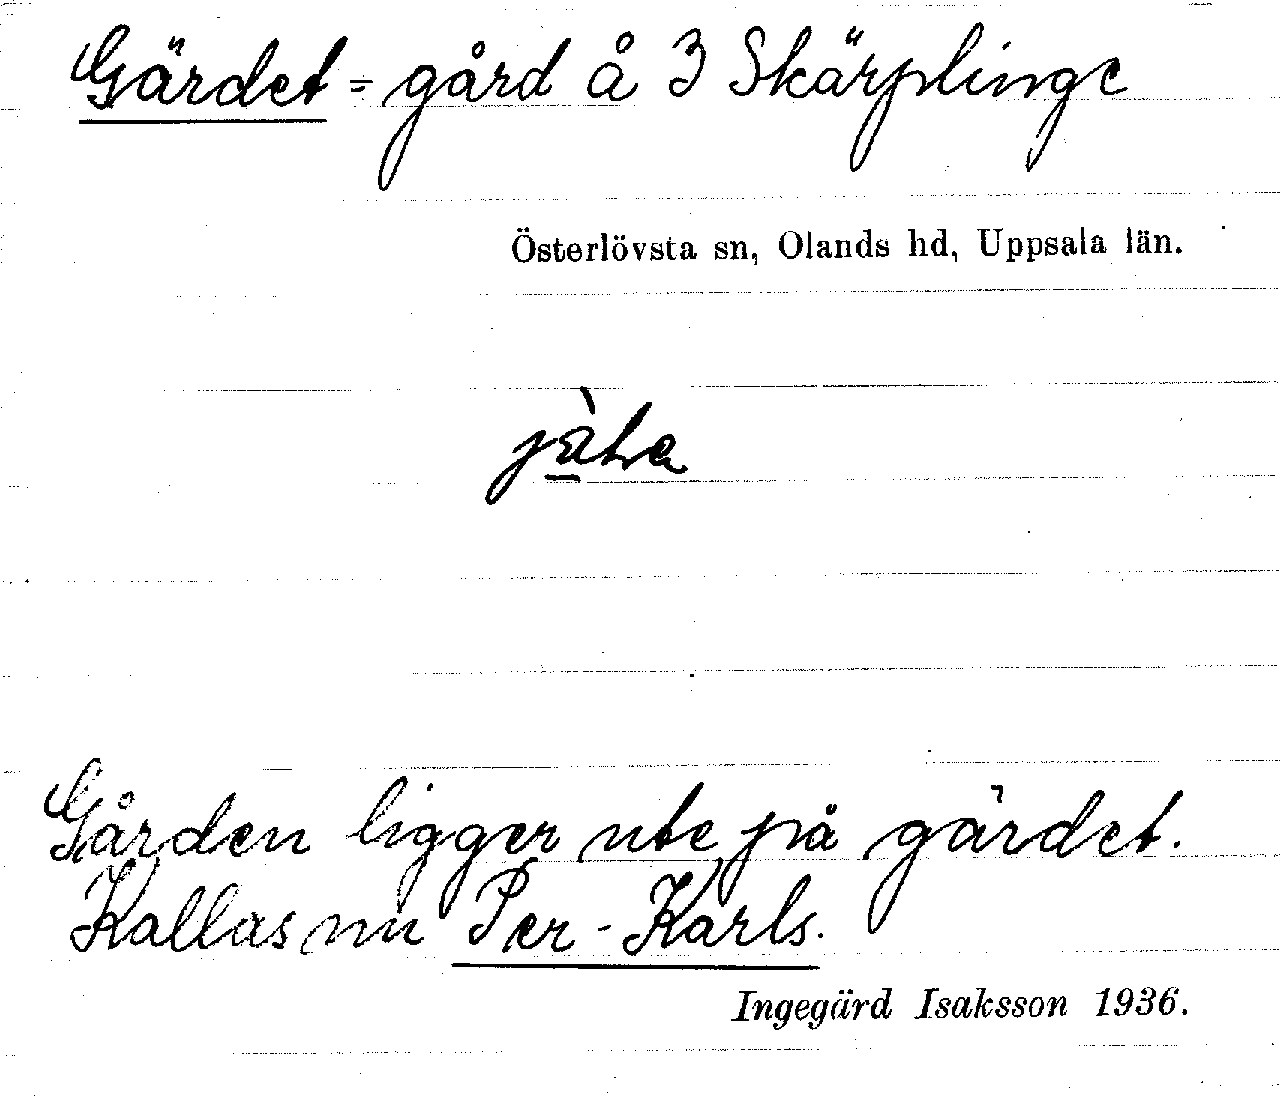 Gärdet = gård å 3 Skärplinge
Österlövsta sn, Olands hd, Uppsala län.
Gården ligger ute på gärdet.
Kallas nu Per-Karls.
Ingegärd Isaksson 1936.